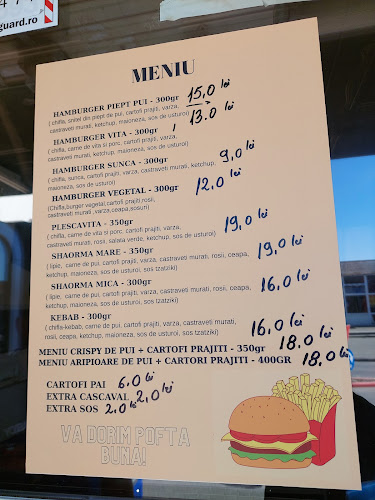 guard.ro
MENIU
HAMBURGER PIEPT PUI - 300gr 15,0 lei
( chifla, snitel din piept de pui, cartofi prajiti, varza,
castraveti murati, ketchup, maioneza, sos de usturoi)
HAMBURGER VITA - 300gr 13.0 lei
( chifla, carne de vita si porc, cartofi prajiti, varza,
castraveti murati, ketchup, maioneza, sos de usturoi)
HAMBURGER SUNCA - 300gr 9,0 lei
( chifla, sunca, cartofi prajiti, varza, castraveti murati, ketchup,
maioneza, sos de usturoi)
HAMBURGER VEGETAL - 300gr 12,0 lei
(chifla,burger vegetal,cartofi prajiti,rosii,
castraveti murati ,varza,ceapa,sosuri)
PLESCAVITA - 350gr 19,0 lei
( chifla, carne de vita si porc, cartofi prajiti, varza,
castraveti murati, rosii, salata verde, ketchup, sos de usturoi)
SHAORMA MARE - 350gr 19,0 lei
( lipie, carne de pui, cartofi prajiti, varza, castraveti murati, rosii, ceapa,
ketchup, maioneza, sos de usturoi, sos tzatziki)
SHAORMA MICA - 300gr 16,0 lei
( lipie, carne de pui, cartofi prajiti, varza, castraveti murati, rosii, ceapa,
ketchup, maioneza, sos de usturoi, sos tzatziki)
KEBAB - 300gr 16,0 lei
( chifla-kebab, carne de pui, cartofi prajiti, varza, castraveti murati,
rosii, ceapa, ketchup, maioneza, sos de usturoi, sos tzatziki)
MENIU CRISPY DE PUI + CARTOFI PRAJITI - 350gr 18.0 lei
MENIU ARIPIOARE DE PUI + CARTORI PRAJITI - 400GR 18.0 lei
CARTOFI PAI 6.0 lei
EXTRA CASCAVAL 2,0 lei
EXTRA SOS 2.0 lei
VA DORIM POFTA
BUNA!